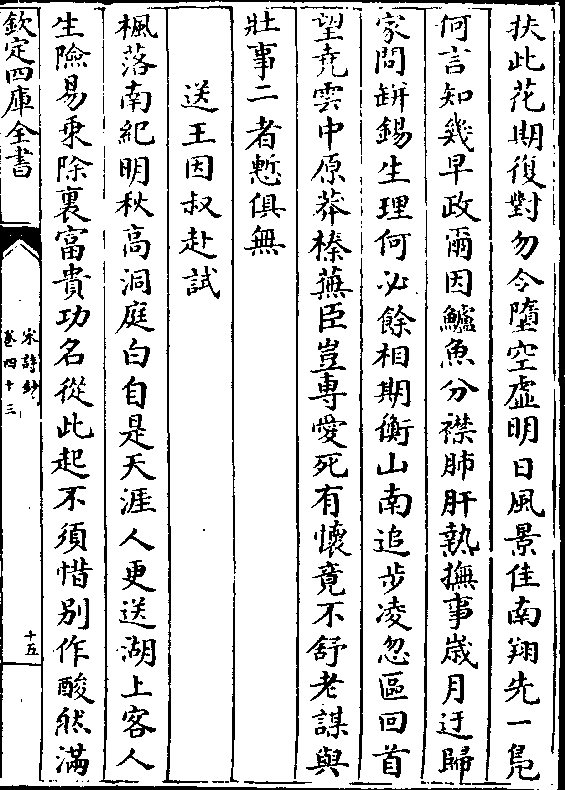 扶此花期復對勿令墮空虛明日風景佳南翔先一鳧
何言知幾早政爾因鱸魚分襟肺肝熱撫事歲月迂歸
家問缾錫生理何必餘相期衡山南追步凌忽區回首
望堯雲中原莽榛蕪臣豈專愛死有懷竟不舒老謀與
壯事二者慙俱無
送王因叔赴試
楓落南紀明秋高洞庭白自是天涯人更送湖上客人
生險易乗除裏富貴功名從此起不須惜别作酸然滿
欽定四庫全書
宋詩鈔
卷四十三
十五